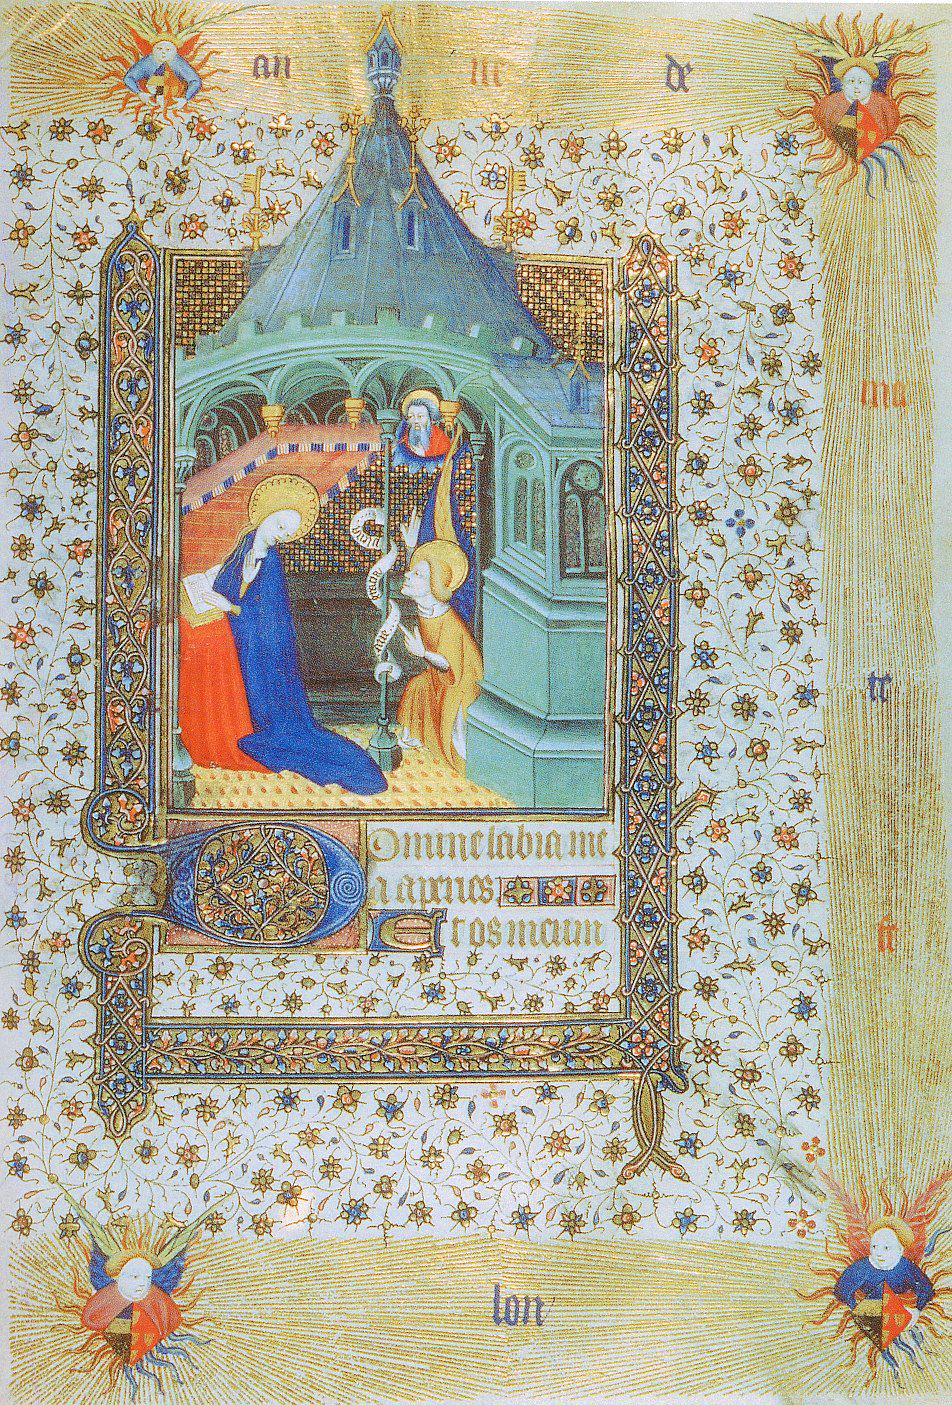 an ne de
ma
te
fe
lon
Domine labia me
a aperies
Et os meum